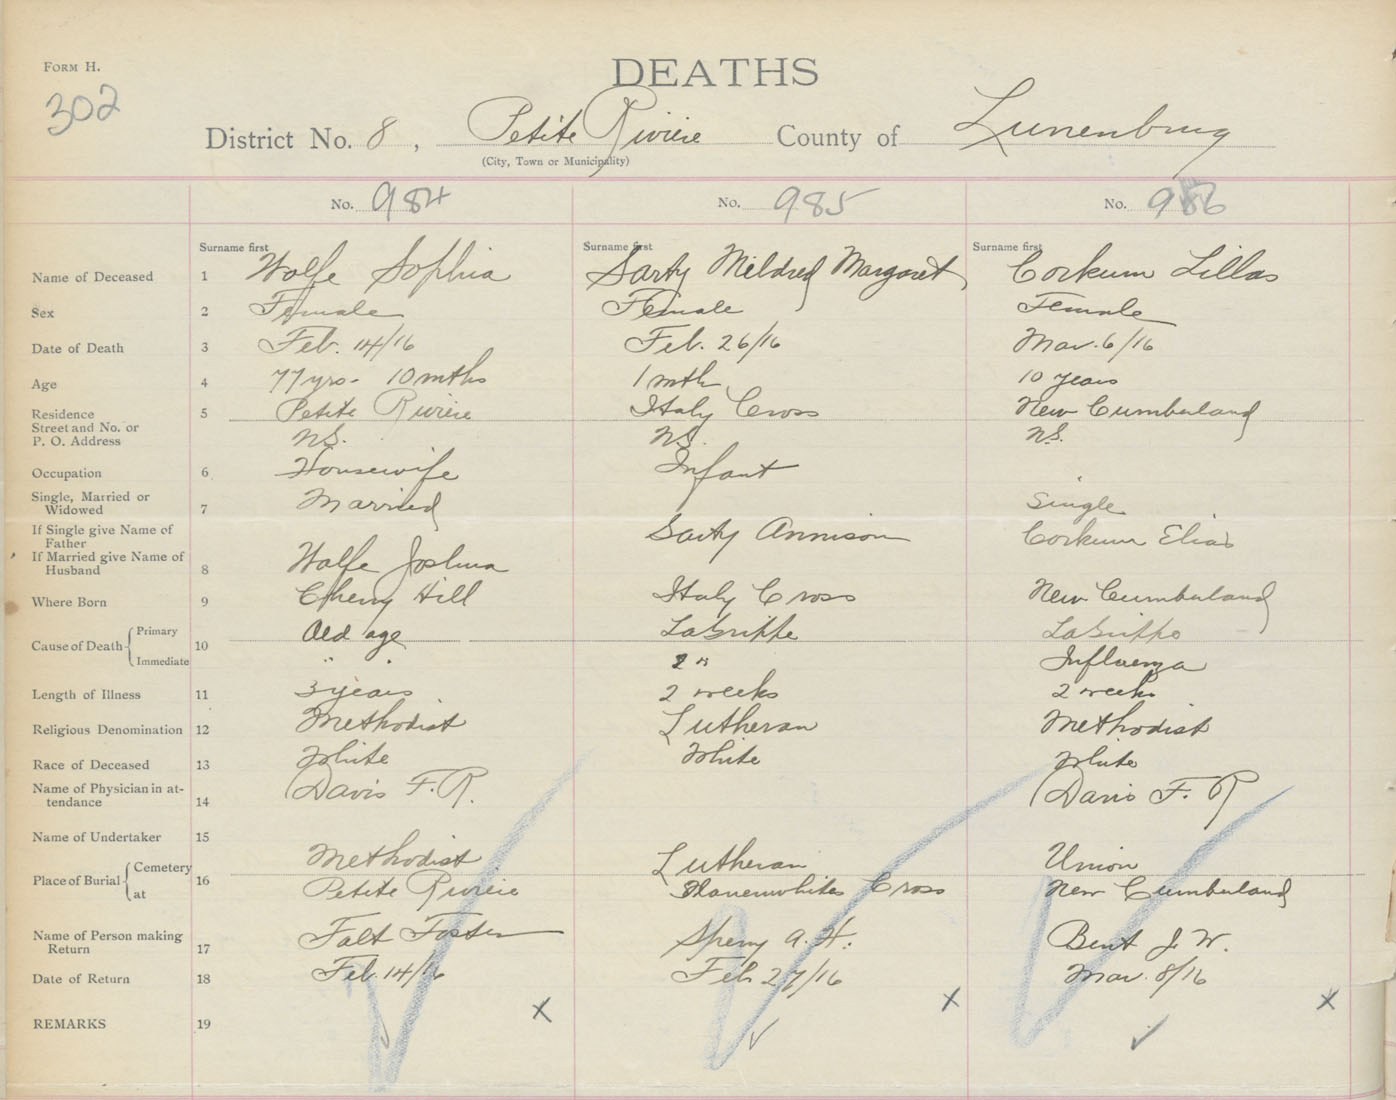 FORM H.
DEATHS
302
District No. 8, Petite Riviere County of Lunenburg
(City, Town or Municipality)
No. 984 No. 985 No. 986
Surname first Surname first Surname first
Name of Deceased 1 Wolfe Sophia Sarty Mildred Margaret Corkum Lillas
Sex 2 Female Female Female
Date of Death 3 Feb. 14/16 Feb. 26/16 Mar. 6/16
Age 4 77 yrs - 10 mths 1 mth 10 years
Residence 5 Petite Riviere Italy Cross New Cumberland
Street and No. or
P. O. Address N.S. N.S. N.S.
Occupation 6 Housewife Infant
Single, Married or
Widowed 7 Married Single
If Single give Name of
Father Sarty Annison Corkum Elias
If Married give Name of
Husband 8 Wolfe Joshua
Where Born 9 Cherry Hill Italy Cross New Cumberland
Cause of Death Primary 10 Old age LaGrippe LaGrippe
Immediate " " " Influenza
Length of Illness 11 3 years 2 weeks 2 weeks
Religious Denomination 12 Methodist Lutheran Methodist
Race of Deceased 13 White White White
Name of Physician in at-
tendance 14 Davis F. R. Davis F. R
Name of Undertaker 15
Place of Burial Cemetery 16 Methodist Lutheran Union
at Petite Riviere Cross New Cumberland
Name of Person making
Return 17 Foster Sperry A. H. Bent J. W.
Date of Return 18 Feb. 14/16 Feb 27/16 Mar. 8/16
x x x
REMARKS 19